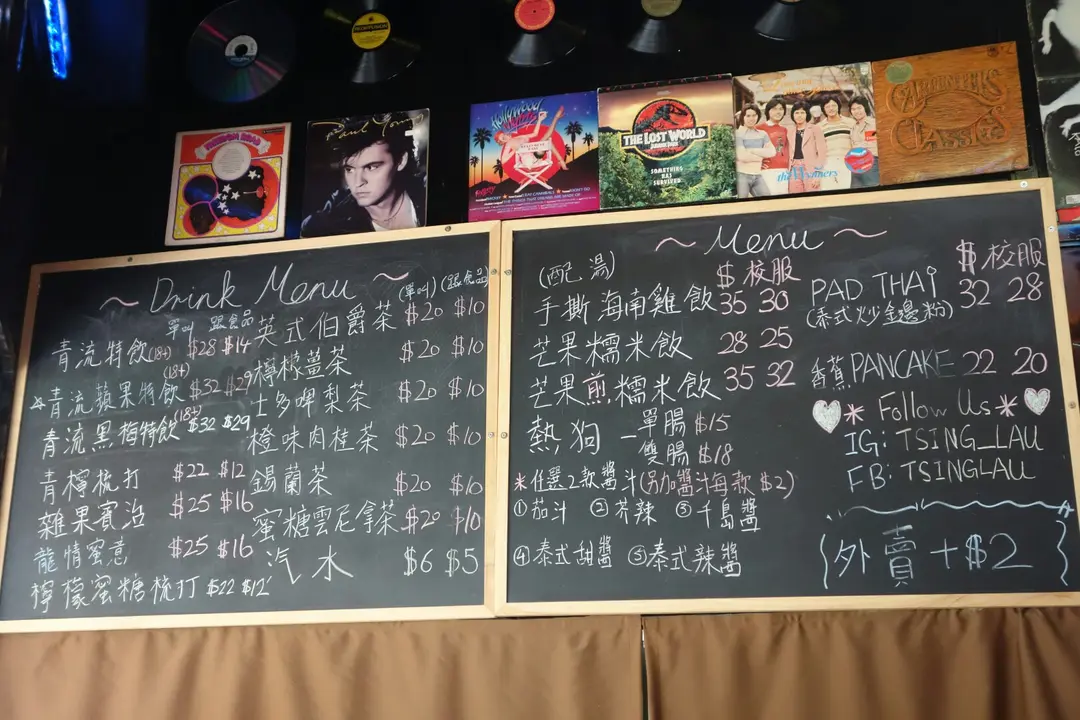 Paul Young
Hollywood Nights
THE LOST WORLD
JURASSIC PARK
SOMETHING HAS SURVIVED
the Wynners
CARPENTERS
CLASSICS
~ Drink Menu ~
單叫 跟食品
青流特飲(18+) $28 $14
青流蘋果特飲(18+) $32 $29
青流黑梅特飲(18+) $32 $29
青檸梳打 $22 $12
雜果賓治 $25 $16
龍情蜜意 $25 $16
檸檬蜜糖梳打 $22 $12
(單叫) (跟食品)
英式伯爵茶 $20 $10
檸檬薑茶 $20 $10
士多啤梨茶 $20 $10
橙味肉桂茶 $20 $10
錫蘭茶 $20 $10
蜜糖雲尼拿茶 $20 $10
汽水 $6 $5
~ Menu ~
(配湯) $ 校服
手撕海南雞飯 35 30
芒果糯米飯 28 25
芒果煎糯米飯 35 32
熱狗 - 單腸 $15
雙腸 $18
*任選2款醬汁(另加醬汁每款$2)
①茄汁 ②芥辣 ③千島醬
④泰式甜醬 ⑤泰式辣醬
$ 校服
PAD THAI 32 28
(泰式炒金邊粉)
香蕉PANCAKE 22 20
* Follow Us *
IG: TSING_LAU
FB: TSINGLAU
外賣+$2